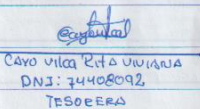 CAYO VILCA RITA VIVIANA
DNI: 74408092
TESORERA